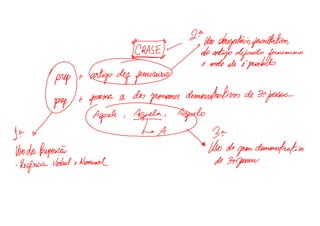 CRASE
2º
Uso obrigatório, facultativo
do artigo definido feminino
e onde ele é proibido
prep + artigo def feminino
prep + fonema a dos pronomes demonstrativos de 3ª pessoa
Aquele, Aquela, Aquilo
↳ A
1º
Uso da Preposição
- Regência Verbal e Nominal
3º
Uso de pron demonstrativo
de 3ª pessoa